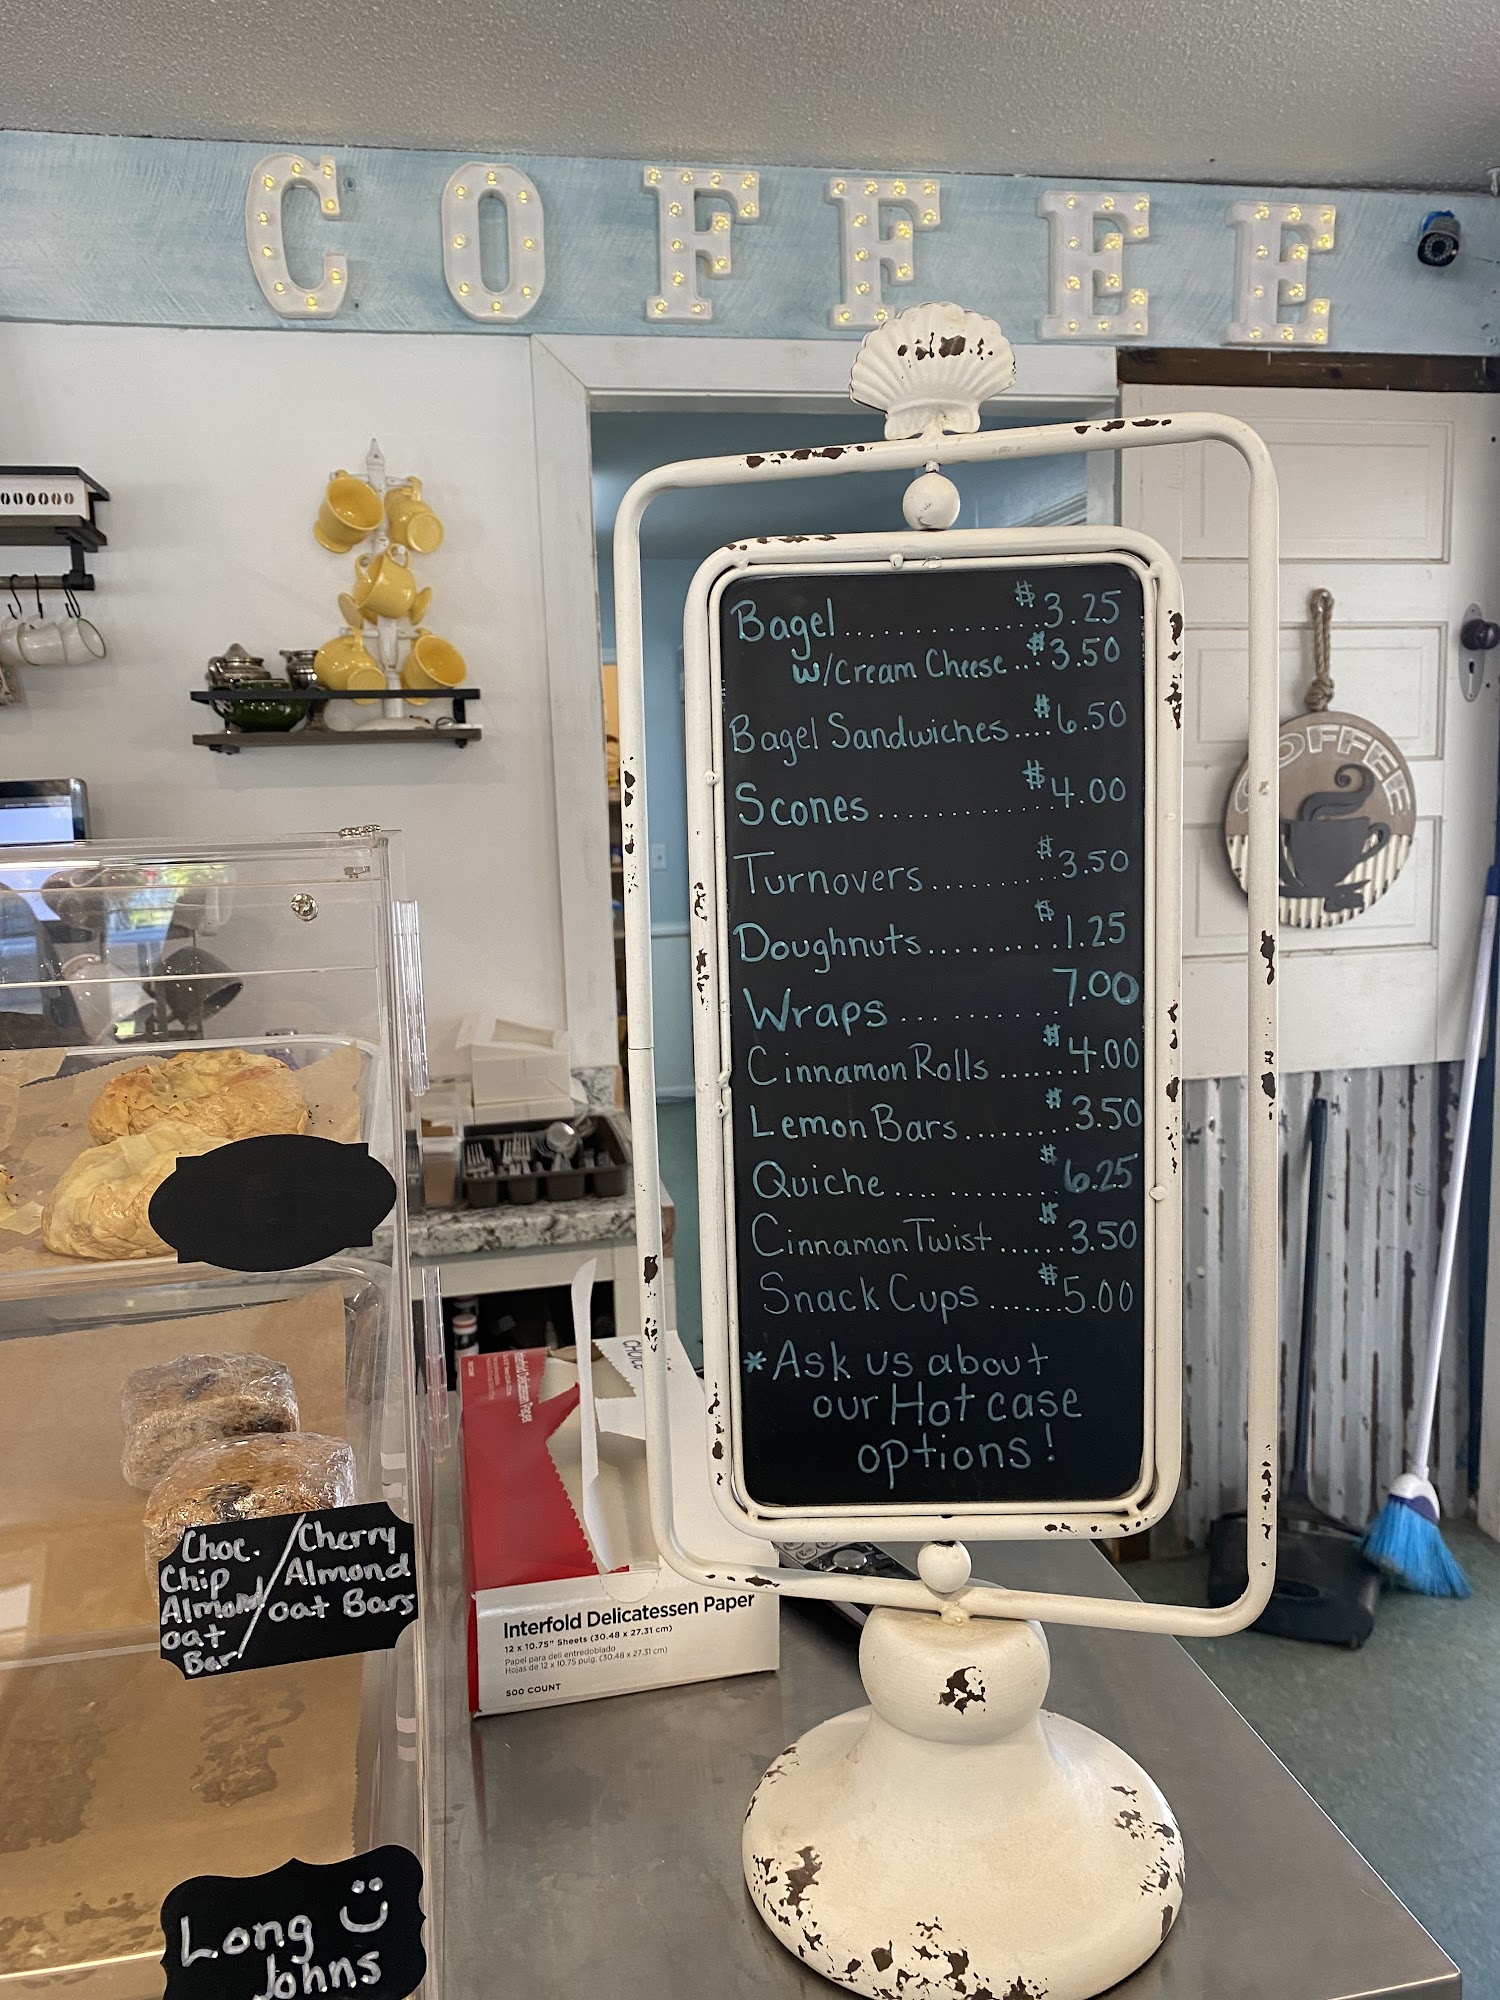 COFFEE
Bagel.............. $3.25
w/Cream Cheese...$3.50
Bagel Sandwiches....$6.50
Scones............. $4.00
Turnovers.......... $3.50
Doughnuts.......... $1.25
Wraps.......... 7.00
Cinnamon Rolls.......$4.00
Lemon Bars.........$3.50
Quiche.............. $6.25
Cinnamon Twist......$3.50
Snack Cups.......$5.00
*Ask us about
our Hot case
options!
COFFEE
Choc.
Chip
Almond
oat
Bar
/Cherry
Almond
oat Bars
Long
Johns
Interfold Delicatessen Paper
Interfold Delicatessen Paper
12 x 10.75" Sheets (30.48 x 27.31 cm)
Papel para deli entredoblado
Hojas de 12 x 10.75 pulg. (30.48 x 27.31 cm)
500 COUNT